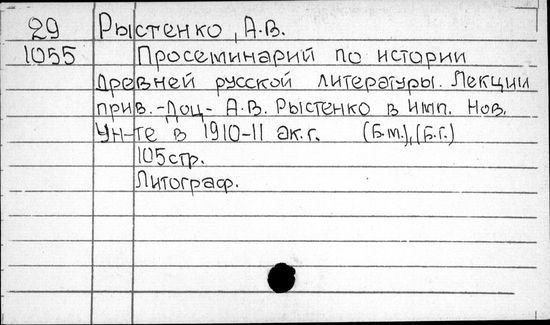 29 Рыстенко, А.В.
1055 Просеминарий по истории
древней русской литературы. Лекции
прив.-доц- А.В. Рыстенко в Имп. Нов.
Ун-те в 1910-11 ак.г. (Б.м.), (Б.г.)
105стр.
Литограф.